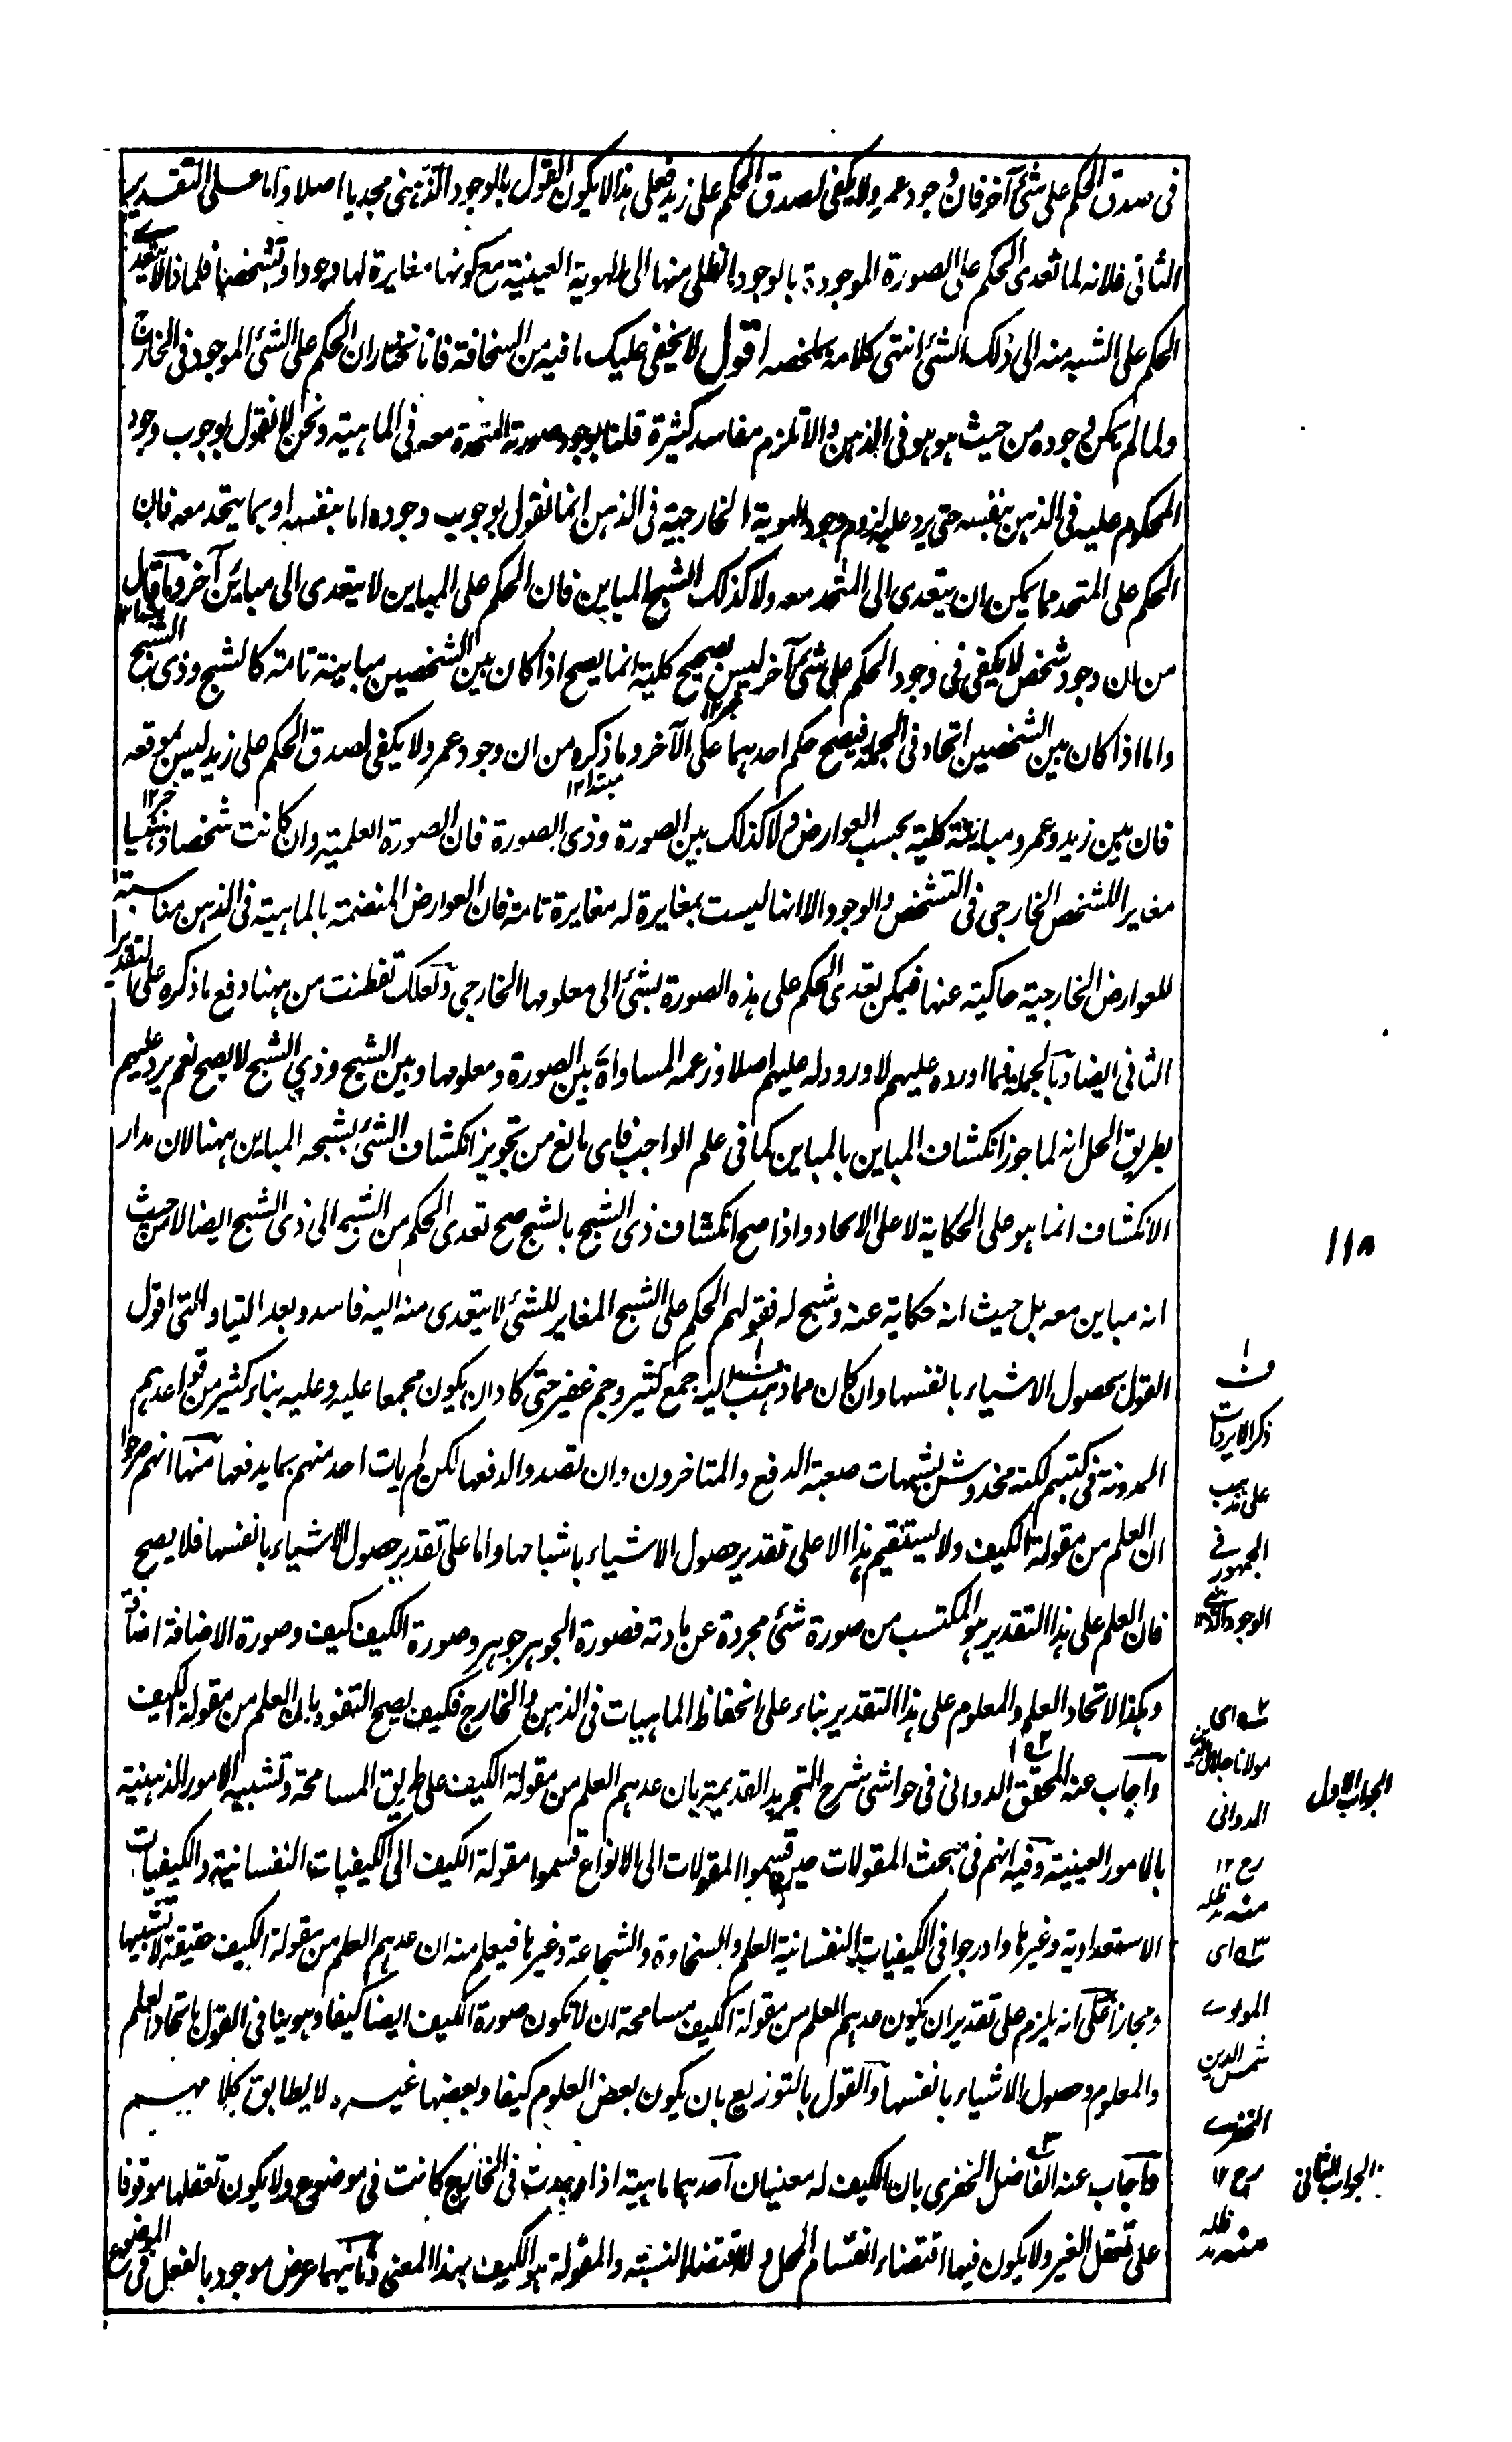 فى صدق الحكم على شئ آخر فان وجود عمرو لا يكفى لصدق الحكم على زيد فعلى هذا لا يكون القول بالوجود الذهنى مجديا اصلا واما على التقدير
الثانى فلانه لما تعدى الحكم على الصورة الموجودة بالوجود الظلى منها الى الهوية العينية مع كونها مغايرة لها وجودا وتشخصا فلماذا لا يتعدى
الحكم على الشبه منه الى ذلك الشئ انتهى كلامه بملخصه اقول لا يخفى عليك ما فيه من السخافة فانا نختار ان الحكم على الشئ الموجود فى الخارج
ولما لم يكن وجوده من حيث هو هو فى الذهن والا تلزم مفاسد كثيرة قلنا بوجود صورته المتحدة معه فى الماهية ونحن لا نقول بوجوب وجود
المحكوم عليه فى الذهن بنفسه حتى يرد عليه لزوم وجود الهوية الخارجية فى الذهن انما نقول بوجوب وجوده اما بنفسه او بما يتحد معه فان
الحكم على المتحد مما يمكن ان يتعدى الى المتحد معه ولا كذلك الشبح المباين فان الحكم على المباين لا يتعدى الى مباين آخر وما قال
من ان وجود شخص لا يكفى فى وجود الحكم على شئ آخر ليس بصحيح كلية انما يصح اذا كان بين الشخصين مباينة تامة كالشبح وذى الشبح
واما اذا كان بين الشخصين اتحاد فى الجملة فيصح حكم احدهما على الآخر وما ذكره من ان وجود عمرو لا يكفى لصدق الحكم على زيد ليس بموقعه
فان بين زيد وعمرو مباينة كلية بحسب العوارض ولا كذلك بين الصورة وذى الصورة فان الصورة العلمية وان كانت شخصا ذهنيا
مغايرا للشخص الخارجى فى التشخص والوجود الا انها ليست بمغايرة له مغايرة تامة فان العوارض المنضمة بالماهية فى الذهن مناسبة
للعوارض الخارجية حاكية عنها فيمكن تعدى الحكم على هذه الصورة بشئ الى معلومها الخارجى ولعلك تفطنت من ههنا دفع ما ذكره على التقدير
الثانى ايضا وبالجملة فما اورده عليهم لا ورود له عليهم اصلا وزعمه المساواة بين الصورة ومعلومها وبين الشبح وذى الشبح لا يصح نعم يرد عليهم
بطريق الحل انه لما جوز انكشاف المباين بالمباين كما فى علم الواجب فاى مانع من تجويز انكشاف الشئ بشبحه المباين ههنا لان مدار
الانكشاف انما هو على الحكاية لا على الاتحاد واذا صح انكشاف ذى الشبح بالشبح صح تعدى الحكم من الشبح الى ذى الشبح ايضا لا من حيث
انه مباين معه بل حيث انه حكاية عنه وشبح له فقولهم الحكم على الشبح المغاير للشئ لا يتعدى منه اليه فاسد وبعد اللتيا والتى اقول
القول بحصول الاشياء بانفسها وان كان مما ذهب اليه جمع كثير وجم غفير حتى كاد ان يكون مجمعا عليه وعليه بناء كثير من قواعدهم
المدونة فى كتبهم لكنه مخدوش بشبهات صعبة الدفع والمتاخرون وان تصدوا لدفعها لكن لم يات احد منهم بما يدفعها منها انهم صرحوا
ان العلم من مقولة الكيف ولا يستقيم هذا الا على تقدير حصول الاشياء باشباحها واما على تقدير حصول الاشياء بانفسها فلا يصح
فان العلم على هذا التقدير هو المكتسب من صورة شئ مجردة عن مادته فصورة الجوهر جوهر وصورة الكيف كيف وصورة الاضافة اضافة
وهكذا لاتحاد العلم والمعلوم على هذا التقدير بناء على انحفاظ الماهيات فى الذهن والخارج فكيف يصح التفوه بان العلم من مقولة الكيف
واجاب عنه المحقق الدوانى فى حواشى شرح التجريد القديمة بان عدهم العلم من مقولة الكيف على طريق المسامحة وتشبيه الامور الذهنية
بالامور العينية وفيه انهم فى مبحث المقولات حين قسموا المقولات الى الانواع قسموا مقولة الكيف الى الكيفيات النفسانية والكيفيات
الاستعدادية وغيرها وادرجوا فى الكيفيات النفسانية العلم والسخاوة والشجاعة وغيرها فيعلم منه ان عدهم العلم من مقولة الكيف حقيقة لا تشبيها
ومجازا على انه يلزم على تقدير ان يكون عدهم العلم من مقولة الكيف مسامحة ان لا تكون صورة الكيف ايضا كيفا وهو ينافى القول باتحاد العلم
والمعلوم وحصول الاشياء بانفسها والقول بالتوزيع بان يكون بعض العلوم كيفا وبعضها غيره لا يطابق كلامهم
واجاب عنه الفاضل الخفرى بان الكيف له معنيان احدهما ماهية اذا وجدت فى الخارج كانت فى موضوع ولا يكون تعقلها موقوفا
على تعقل الغير ولا يكون فيها اقتضاء انقسام المحل ولا اقتضاء النسبة والمقولة هو الكيف بهذا المعنى وثانيهما عرض موجود بالفعل فى الموضوع
١١٨
ف ١
ذكر الايرادات
على مذهب
الجمهور فى
الوجود الذهنى
٢ اى
مولانا جلال الدين
الدوانى
رح ١٢
منه مد ظله
الجواب الاول
٣ اى
المولوى
شمس الدين
الخفرى
رح ١٢
منه مد ظله
الجواب الثانى